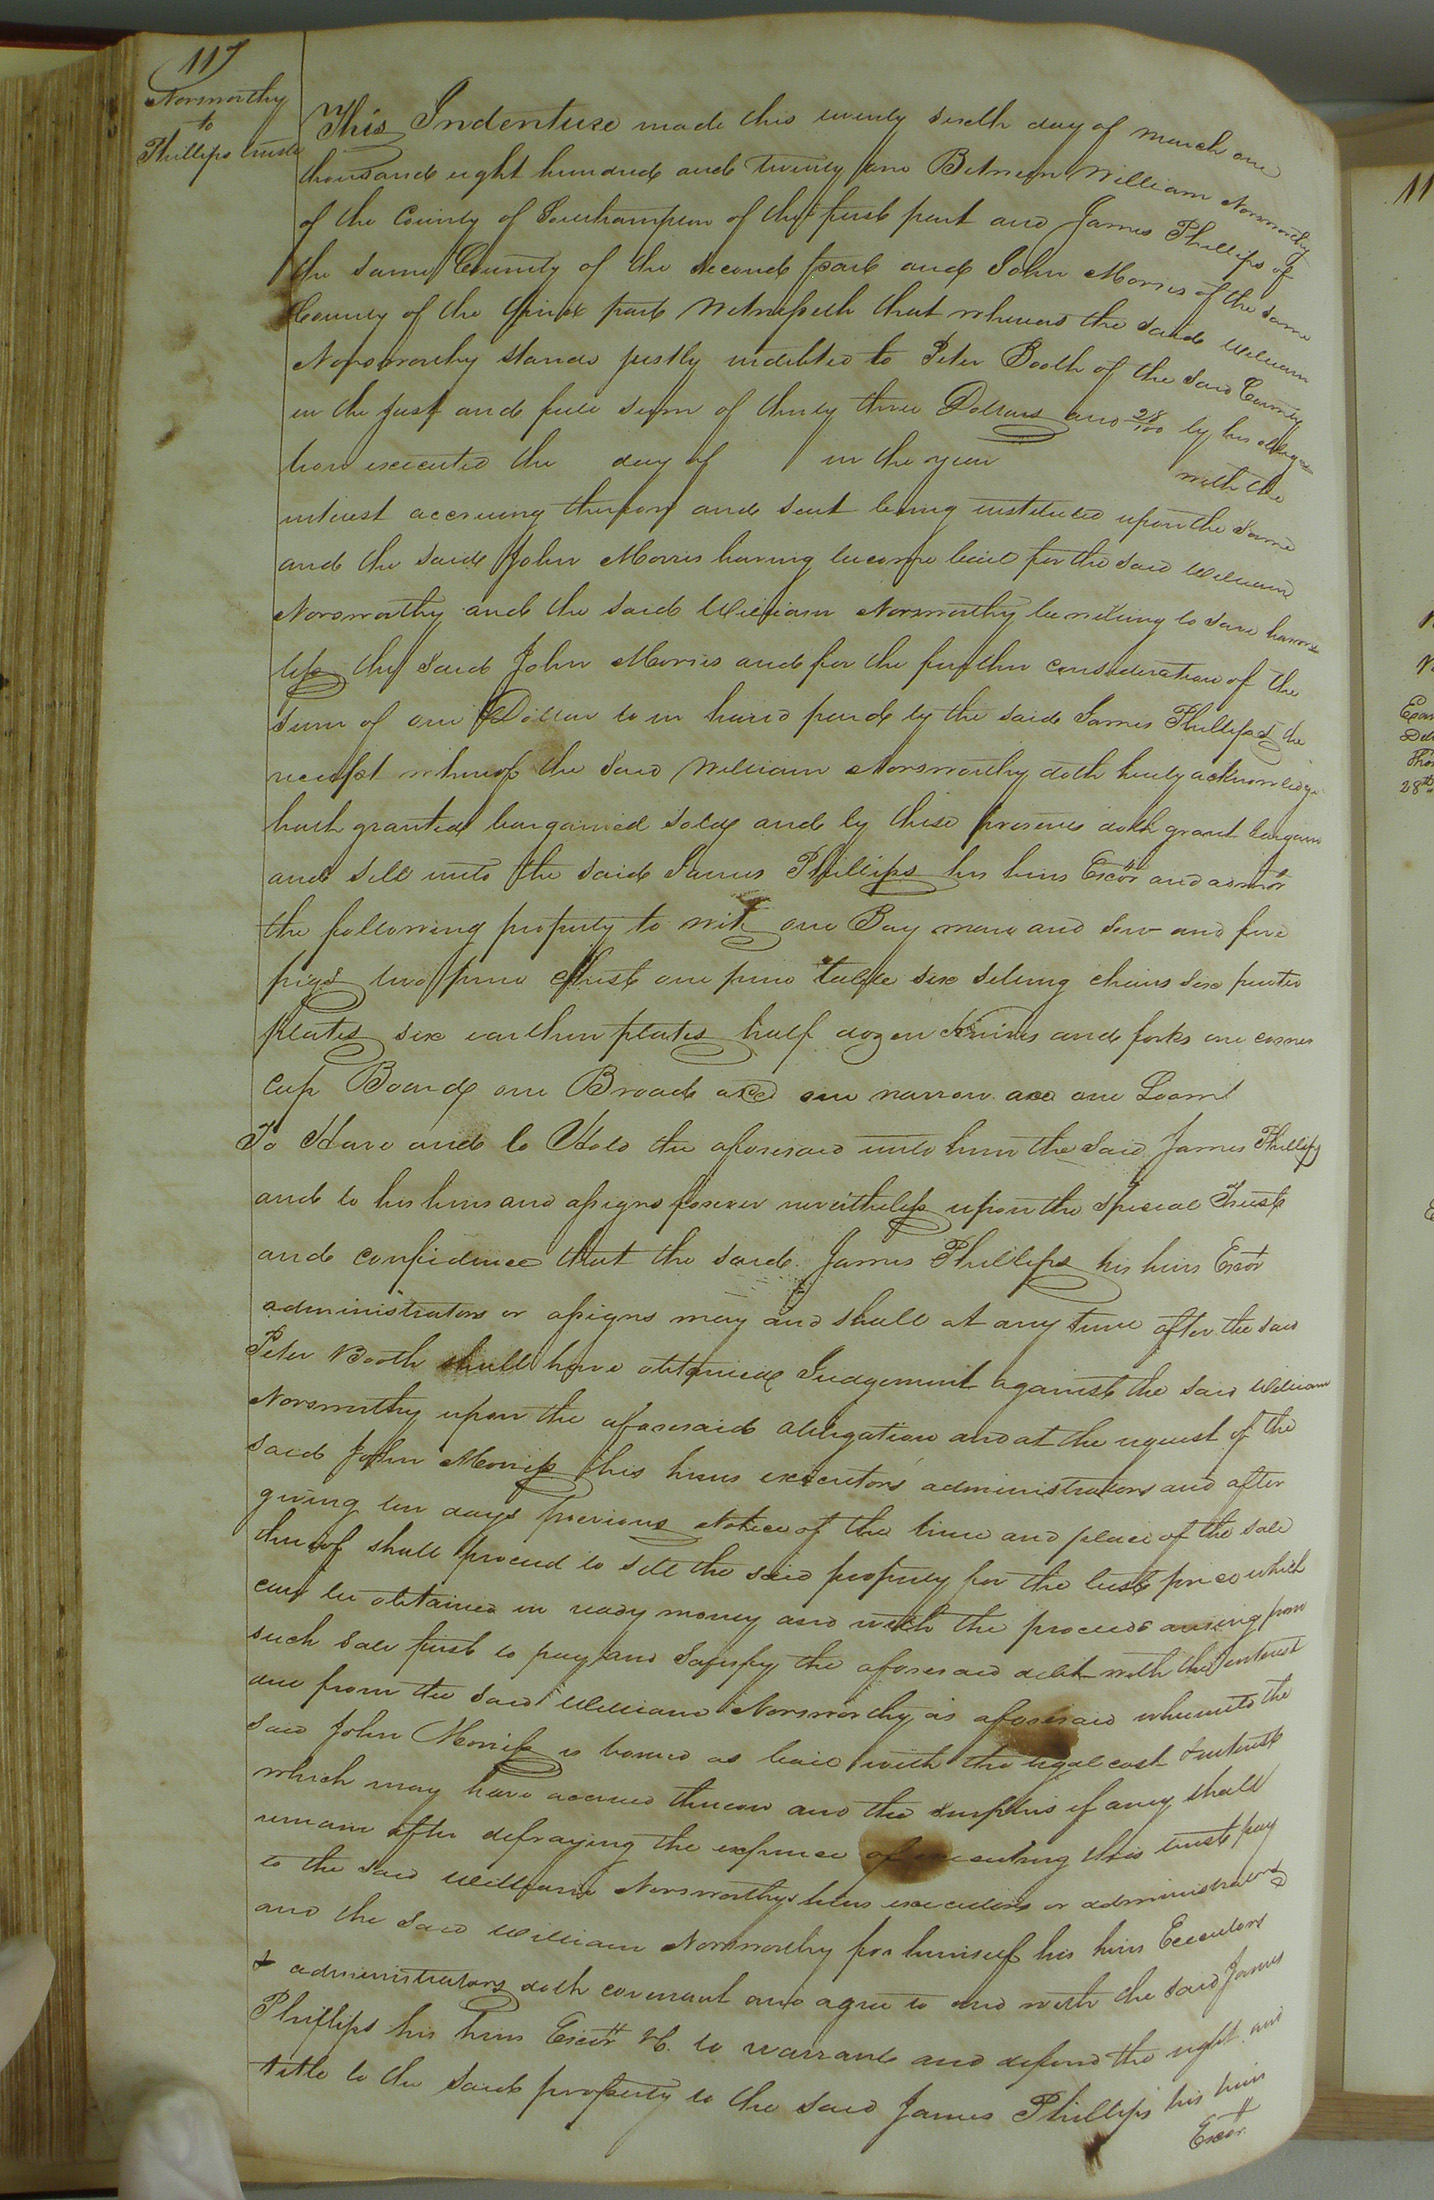 117
Norsworthy
to
Phillips trust
This Indenture made this twenty sixth day of March one
thousand eight hundred and twenty one Between William Norsworthy
of the County of Southampton of the first part and James Phillips of
the same County of the second part and John Morris of the same
County of the third part Witnesseth that whereas the said William
Norsworthy stands justly indebted to Peter Booth of the said County
in the just and full sum of thirty three Dollars and 28/100 by his obliga
tion executed the day of in the year with the
interest accruing thereon and suit being instituted upon the same
and the said John Morris having become bail for the said William
Norsworthy and the said William Norsworthy being willing to save harm
less the said John Morris and for the further consideration of the
sum of one Dollar to in hand paid by the said James Phillips the
receipt whereof the said William Norsworthy doth hereby acknowledge
hath granted bargained sold and by these presents doth grant bargain
and sell unto the said James Phillips his heirs Exors and admors
the following property to wit one Bay mare and sow and five
pigs two pine Chest one pine table six seting chairs six puter
plates six earthen plates half dozen Knives and forks one corner
Cup Board one Broad axe one narrow axe one Loom
To Have and to Hold the aforesaid unto him the said James Phillips
and to his heirs and assigns forever nevertheless upon the special Trust
and confidence that the said James Phillips his heirs Exors
administrators or assigns may and shall at any time after the said
Peter Booth shall have obtained Judgement against the said William
Norsworthy upon the aforesaid obligation and at the request of the
said John Morris his heirs executors administrators and after
giving ten days previous Notice of the time and place of the sale
thereof shall proceed to sell the said property for the best price which
can be obtained in ready money and with the proceeds arising from
such sale first to pay and Satisfy the aforesaid debt with the interest
due from the said William Norsworthy as aforesaid whereunto the
said John Morris is bound as bail with the legal cost & interest
which may have accrued thereon and the surplus if any shall
remain after defraying the expence of executing this trust pay
to the said William Norsworthys heirs executors or administrators
and the said William Norsworthy for himself his heirs Executors
& administrators doth covenant and agree to and with the said James
Phillips his heirs Exors &c. to warrant and defend the right and
title to the said property to the said James Phillips his heirs
Exors
11
28th